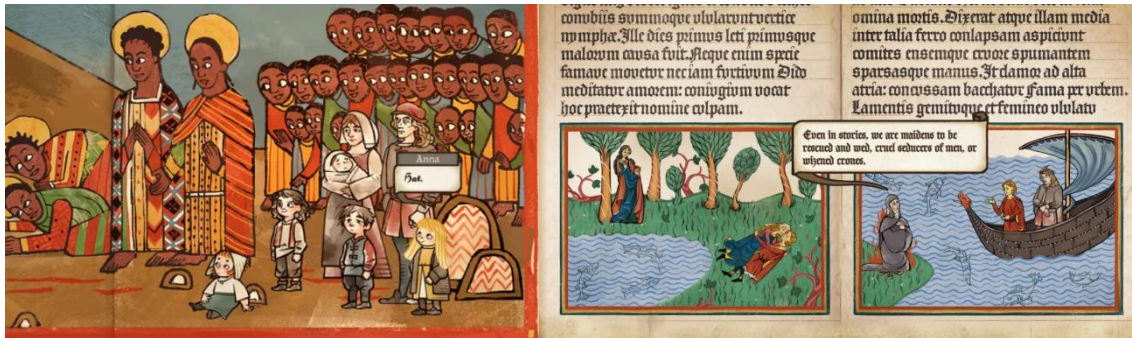 Anna
Hat.
convbiis svmmoqve vlvlarvnt vertice
nymphæ. Ille dies primvs leti primvsqve
malorvm cavsa fvit. Neqve enim specie
famave movetvr nec iam fvrtivvm Dido
meditatvr amorem: conivgivm vocat
hoc praetexit nomine cvlpam.
omina mortis. Dixerat atqve illam media
inter talia ferro conlapsam aspicivnt
comites ensemqve crvore spvmantem
sparsasqve manvs. It clamor ad alta
atria: concvssam bacchatvr Fama per vrbem.
Lamentis gemitvqve et femineo vlvlatv
Even in stories, we are maidens to be
rescued and wed, cruel seducers of men, or
wizened crones.